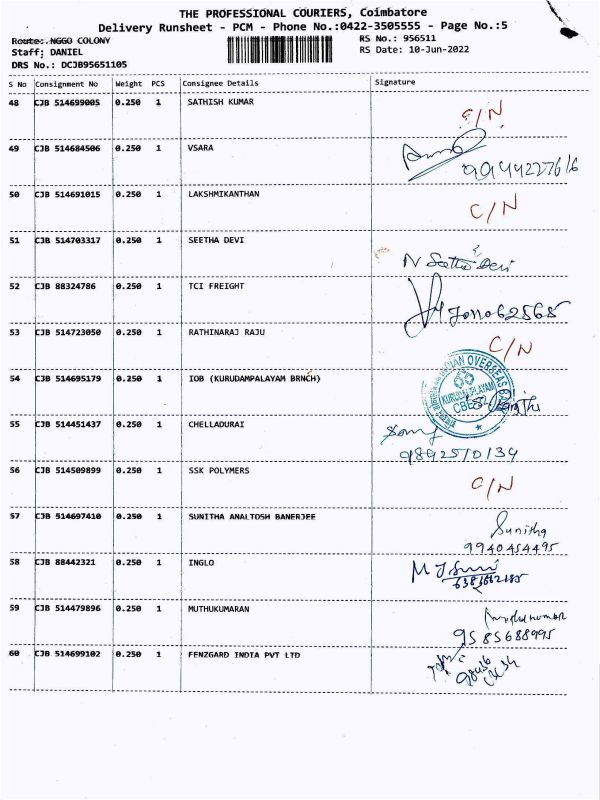 THE PROFESSIONAL COURIERS, Coimbatore
Delivery Runsheet - PCM - Phone No.:0422-3505555 - Page No.:5
Route: NGGO COLONY
RS No.: 956511
Staff; DANIEL
RS Date: 10-Jun-2022
DRS No.: DCJB95651105
S No Consignment No Weight PCS Consignee Details Signature
48 CJB 514699005 0.250 1 SATHISH KUMAR C/N
49 CJB 514684506 0.250 1 VSARA
9944227616
50 CJB 514691015 0.250 1 LAKSHMIKANTHAN C/N
51 CJB 514703317 0.250 1 SEETHA DEVI N Seetha Devi
52 CJB 88324786 0.250 1 TCI FREIGHT
53 CJB 514723050 0.250 1 RATHINARAJ RAJU C/N
54 CJB 514695179 0.250 1 IOB (KURUDAMPALAYAM BRNCH)
INDIAN OVERSEAS
55 CJB 514451437 0.250 1 CHELLADURAI
9892570134
56 CJB 514509899 0.250 1 SSK POLYMERS C/N
57 CJB 514697410 0.250 1 SUNITHA ANALTOSH BANERJEE Sunitha
9940454495
58 CJB 88442321 0.250 1 INGLO
59 CJB 514479896 0.250 1 MUTHUKUMARAN
9585688995
60 CJB 514699102 0.250 1 FENZGARD INDIA PVT LTD